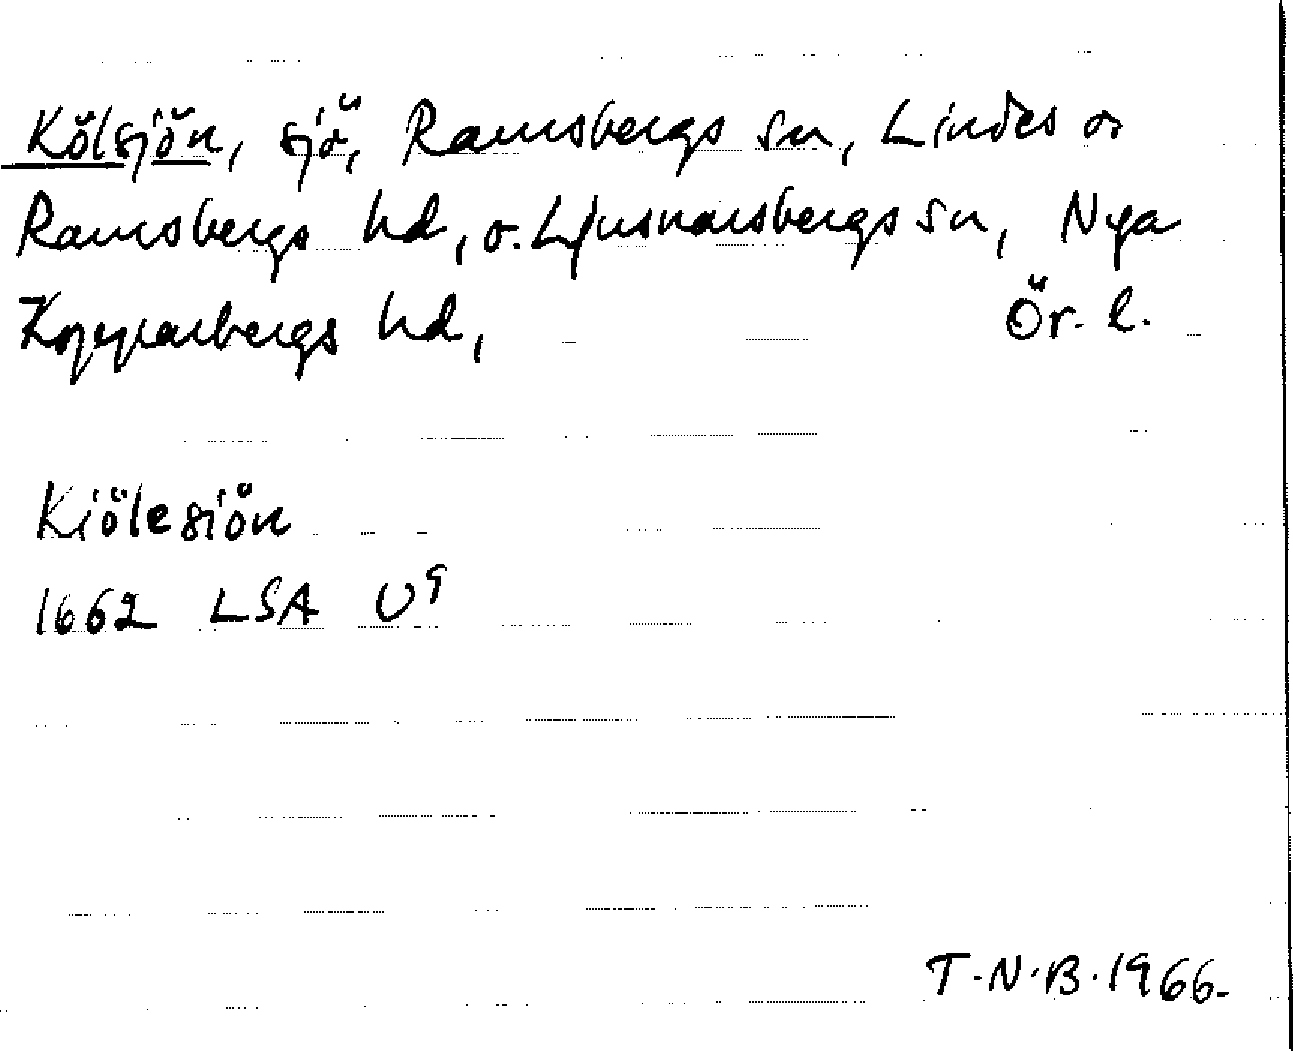 Kölsjön, sjö, Ramsbergs sn, Lindes o
Ramsbergs hd, o. Ljusnarsbergs sn, Nya
Kopparbergs hd, Ör. l.
Kiölesiön
1662 LSA U9
T.N.B. 1966.